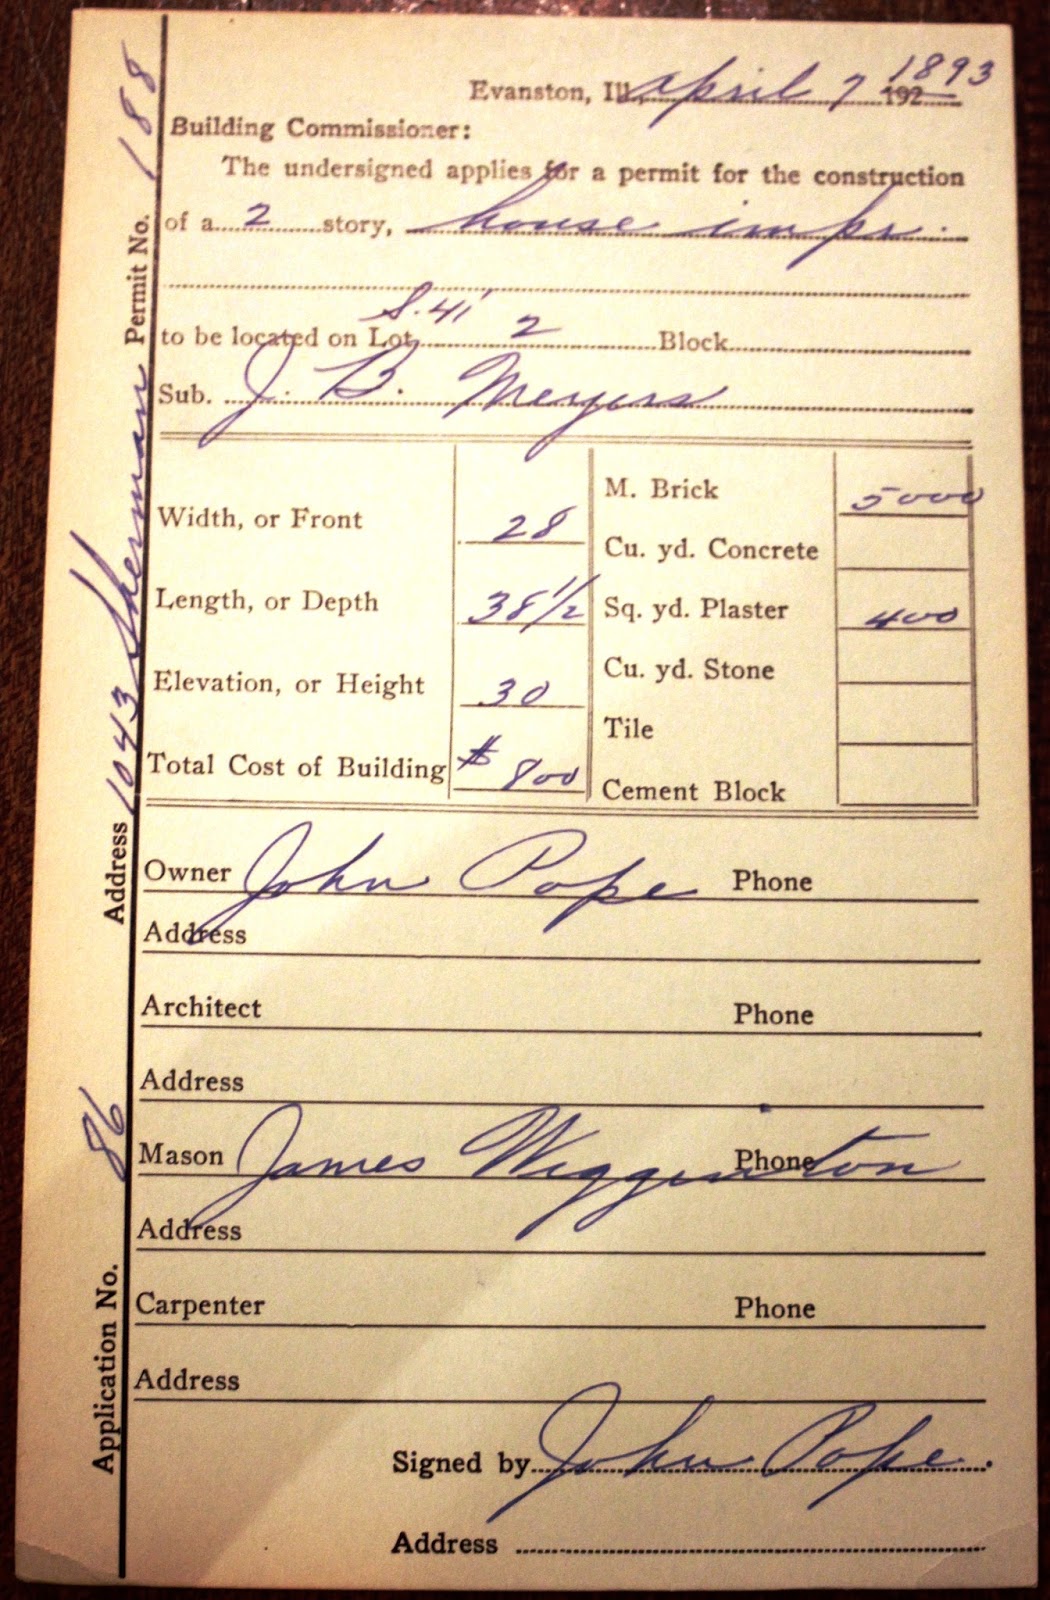 Evanston, Ill. April 7 1893 192
Building Commissioner:
The undersigned applies for a permit for the construction
of a 2 story, house impr.
S. 41'
to be located on Lot 2 Block
Sub. J. B. Meyers
Width, or Front 28
Length, or Depth 38 1/2
Elevation, or Height 30
Total Cost of Building $ 800
M. Brick 5000
Cu. yd. Concrete
Sq. yd. Plaster 400
Cu. yd. Stone
Tile
Cement Block
Owner John Pope Phone
Address
Architect Phone
Address
Mason James Wigginton Phone
Address
Carpenter Phone
Address
Signed by John Pope.
Address
Application No. 86 Address 1043 Sherman Permit No. 188